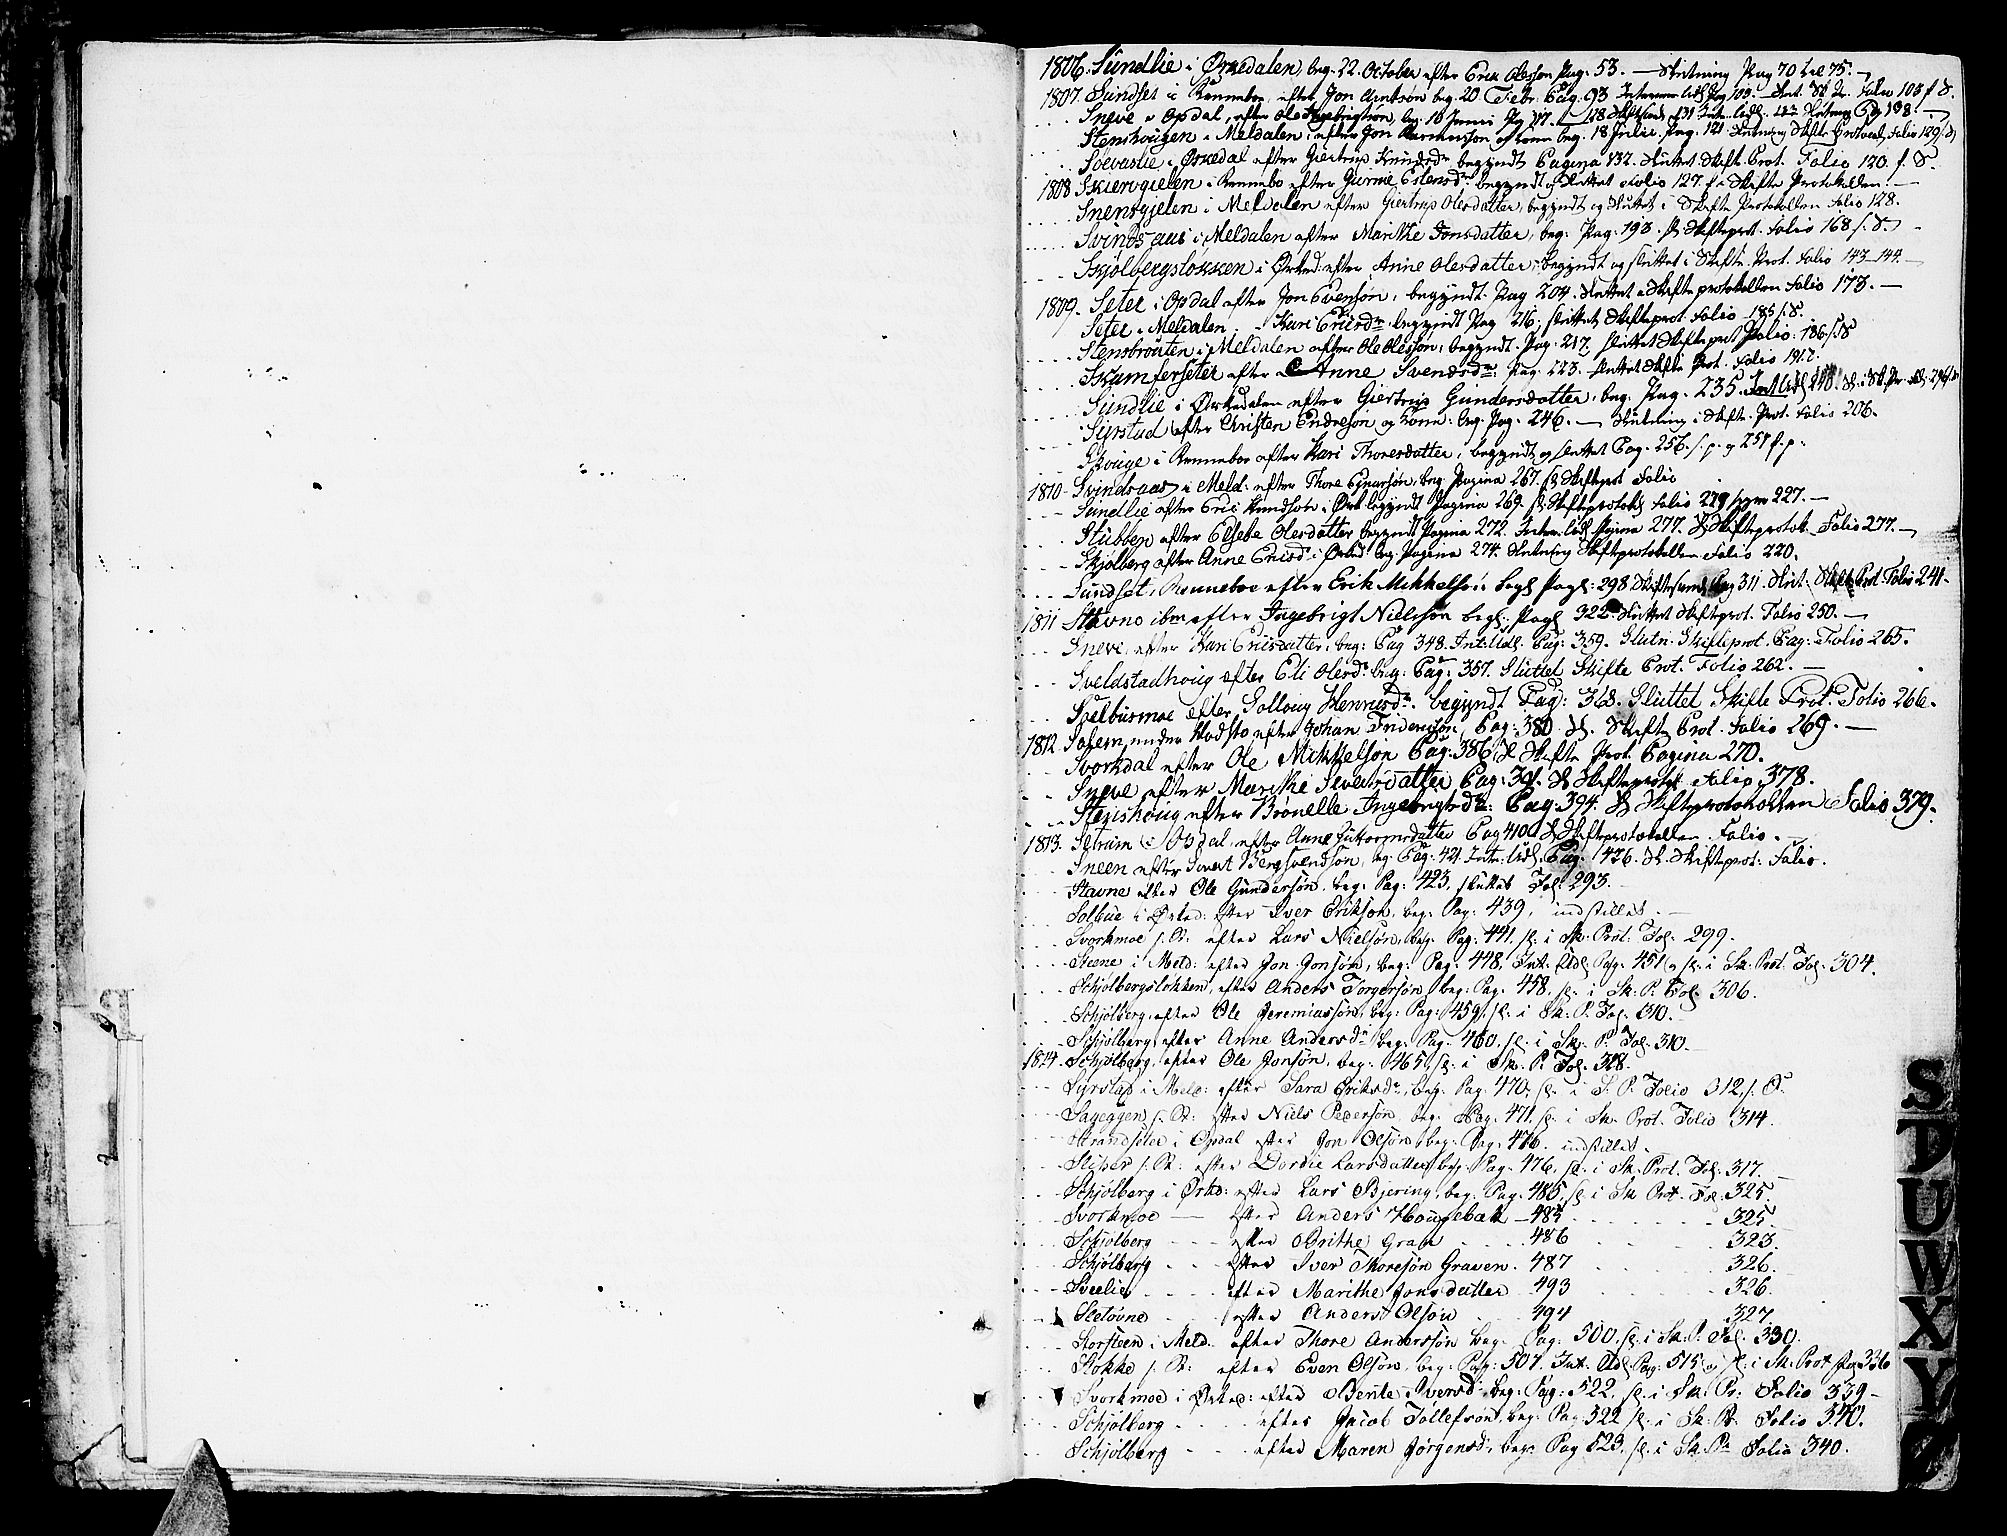 1806. Sundlie i Ørkedalen, beg. 22. October efter Erik Olessøn Pag. 53. — Slutning Pag 70 til 75. —
1807. Sundset i Renneboe, efter Jon Arntsøn beg. 20 Febr. Pag. 93 Folio 103 f S.
Sneve i Opdal, efter Ole Ingebrigtsøn, beg. 16 Junii Pag 117.
Stenshougen i Meldalen, efter Jon beg. 18 Julii. Pag. 121 Folio 129
i Ørkedal efter Giertrup Knudsdr. begyndt Pagina 132. Sluttet Skift. Prot. Folio 120. f. S.
1808 Skiervgielen i Rennebo efter Gurnie Estensdr. begyndt og Sluttet Folio 127. f i Skifte Protokollen. —
Snensgielen i Meldalen efter Giertrup Olesdatter, begyndt og Sluttet i Skifte Protokollen Folio 128.
Svindsaas i Meldalen efter Marithe Jonsdatter, beg. Pag. 193. Skifteprot. Folio 168 f. S.
Skjølbergsløkken i Ørked. efter Anne Olesdatter, begyndt og sluttet i Skifte Prot. Folio 143-144. —
1809. Seter i Opdal efter Jon Evensøn, begyndt. Pag 204. Sluttet i Skifte protokollen Folio 173. —
Seter i Meldalen - Kari Ericsdr. begyndt Pag 216, sluttet Skifteprot. Folio 185 f. S.
Stensbrouten i Meldalen efter Ole Olessøn, begyndt. Pag. 217. sluttet Skifteprot Folio: 186 f. S
Skamferseter efter Anne Svendsdr. Pag. 223. sluttet Skifte Prot. Folio 191.
Sundlie i Ørkedalen efter Giertrup Gundersdatter, beg. Pag. 235. Int. Udl. 240.
Syrstad efter Christen Endresøn og Kone: beg. Pag. 246. — Slutning i Skifte. Prot. Folio 206.
Skouge i Renneboe efter Kari Thoresdatter, begyndt og sluttet Pag. 256. f. p. og 257 f. p.
1810 - Svindsaas i Meld: efter Thore Einarsøn, beg. Pagina 267. sl. Skifteprot Folio
Sundlie efter Eric Knudsøn i Ørk. begyndt Pagina 269. sl. Skifteprotok. Folio 227. —
Stubben efter Elsebe Olesdatter begyndt Pagina 272. Interim. Udl. Pagina 277. Sl. Skifteprotok. Folio 277. —
Skjølberg efter Anne Ericsd. i Ørked beg. Pagina 274. Slutning Skifteprotokollen Folio 220.
Sundset i Rennebo efter Erik Mikkelsøn begl. Pagl: 298 Skiftesaml. Pag 311 Slut. Skift. Prot. Folio 241.
1811 Stavne ibm efter Ingebrigt Nielsøn begl. Pagl 322 Sluttet Skifteprot. Folio 250. —
Sneve, efter Kari Ericsdatter, beg: Pag 348. Int: Udl. Pag: 359. Slutn: Skifteprot. Pag: Folio 265.
Sveldstadhoug efter Eli Olesdr. beg: Pag: 357. Sluttet Skifte Prot. Folio 262. —
Svelbusmoe efter Solloug Henricsdr. begyndt Pag: 368. Sluttet Skifte Prot. Folio 266.
1812. Solem under efter Johan Friderichsøn, Pag: 380. Sl. Skifte Prot. Folio 269. —
Svorkdal efter Ole Mikkelsøn Pag: 386, Sl Skifte Prot. Pagina 270.
Sneve efter Marithe Sivertsdatter Pag: Sl. Skifteprotok Folio 378.
Stenshoug efter Brønelle Ingebrigtsdr. Pag: 394. Sl. Skifteprotokollen Folio 379.
1813. Sletrum i Opdal, efter Anne Guttormsdatter Pag 410 Sl. Skifteprotokollen Folio. —
Sneen efter Sivert Bergsvendsøn, beg. Pag: 421. Int: Udl. Pag: 436. Sl. Skifteprot: Folio.
Stavne efter Ole Gundersøn. beg: Pag: 423, sluttet Fol: 293.
Solbue i Ørked: efter Iver Eriksøn, beg: Pag: 439, indstillet. —
Svorkmoe s. St: efter Lars Nielsøn, beg: Pag: 441, sl: i Sk: Prot: Fol: 299.
Steene i Meld: efter Jon Jonsøn, beg: Pag: 448, Int: Udl Pag: 451, og sl: i Sk: Prot. Fol: 304.
Schjølbergsløkken, efter Anders Torgersøn, beg: Pag: 458, sl: i Sk: P. Fol: 306.
Schjølberg, efter Ole Jeremiassøn, beg: Pag: 459, sl: i Sk. P. Fol: 310.
Schjølberg, efter Anne Andersdr beg: Pag: 460, sl: i Sk: P. Fol: 310.
1814. Schjølberg, efter Ole Jonsøn, beg: 465, sl: i Sk: P: Fol: 328.
Syrstad i Meld: efter Sara Eriksdr., beg: Pag: 470, sl: i S: P: Folio 312, f. S.
Sageggen s. St: efter Niels Pedersøn, beg: Pag: 471, sl: i Sk: Prot. Folio 314.
Strandseter i Opdal efter Jon Olsøn, beg: Pag: 476. indstillet.
s. St: efter Dordie Larsdatter, beg: Pag: 476, sl: i Sk: Prot. Fol: 317.
Schjølberg i Ørkd: efter Lars Bjering, beg: Pag: 485, sl: i Sk Prot. Fol: 325.
Svorkmoe — efter Anders Hougebak — 485 325.
Schjølberg - - - efter Brithe Gran 486 323.
Schjølberg - - - efter Iver Thoresøn Graven. 487 326.
efter Marithe Jonsdatter 493 326.
efter Anders Olsøn 494 327
Storsteen i Meld. efter Thore Anderssøn beg: Pag: 500, sl: i Sk: P. Fol: 330.
Stokke s. St: efter Even Olsøn, beg: Pag: 507. Int. Udl Pag: 515 og sl: i Sk: Prot Pag 336
Svorkmoe i Ørked: efter Bente Iversd: beg: Pag: 522, sl: i Sk: Pr: Folio 339 -
Schjølberg - - - efter Jacob Tollefsøn, beg: Pag 522 sl: i Sk: Pr: Folio 340.
Schjølberg - - - efter Maren Jørgensd:, beg: Pag 523. sl: i Sk: Pr Folio 340.
S
T
U
W
X
Y
Ø